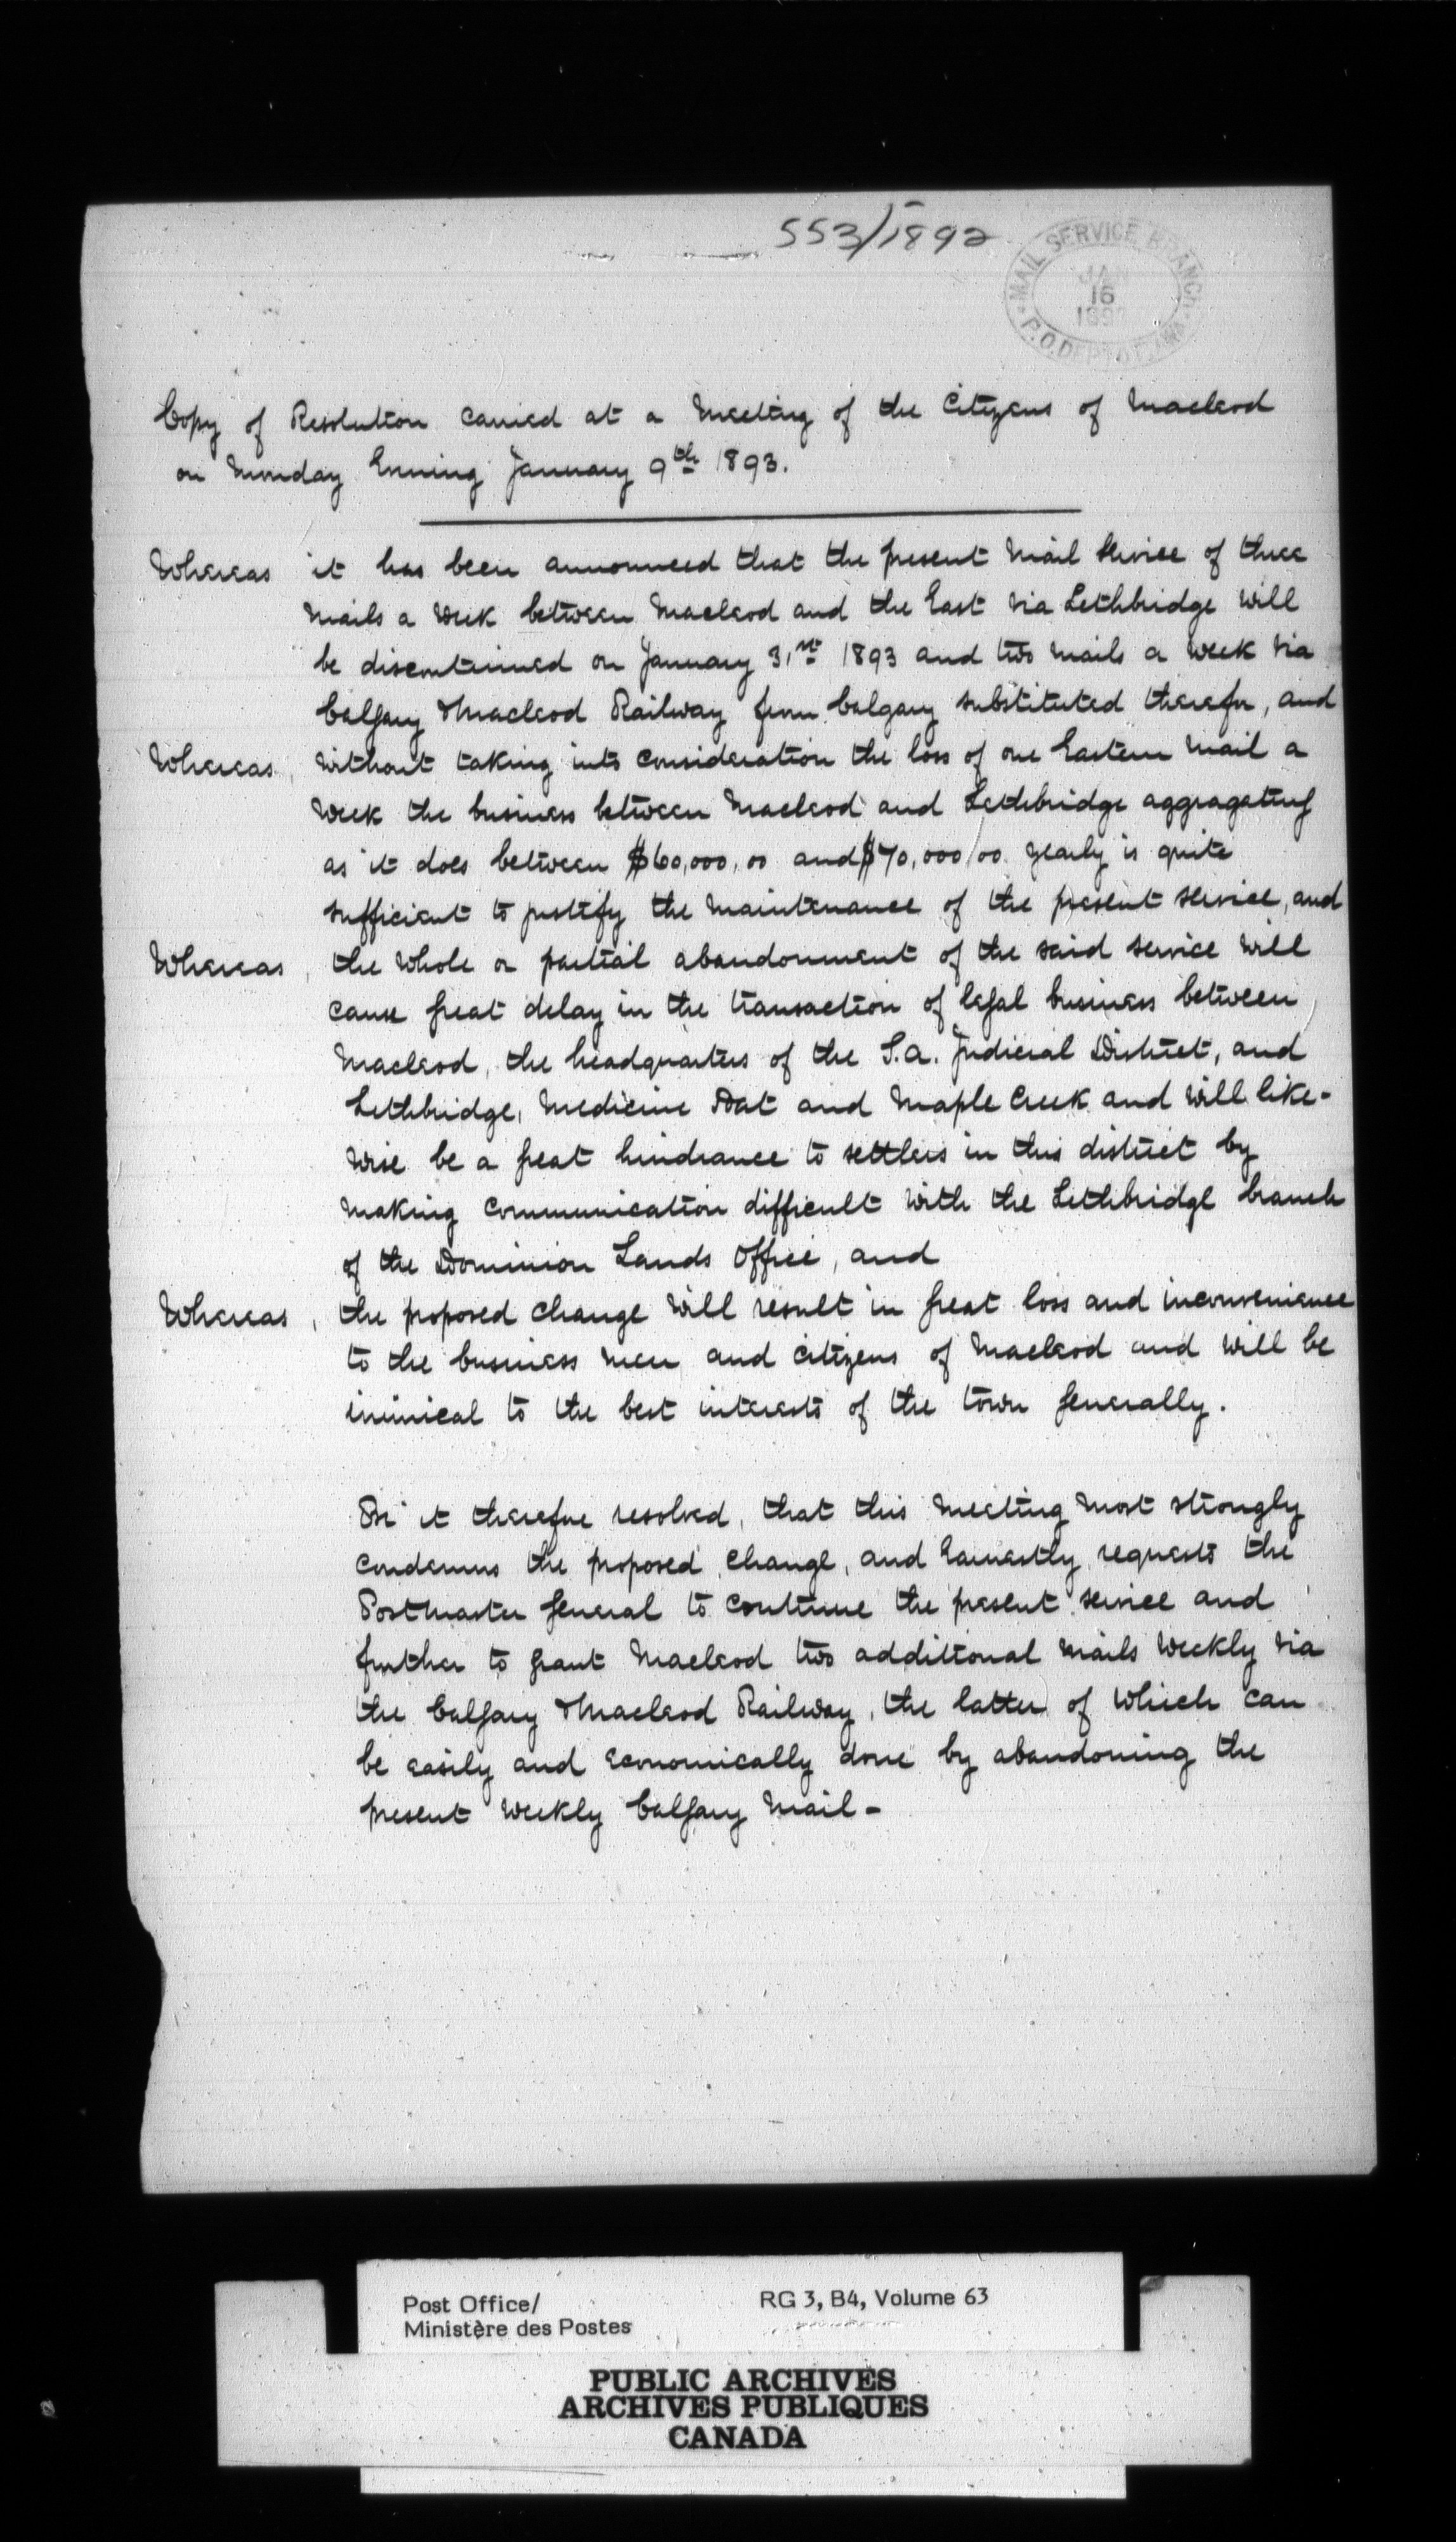 553/1892
MAIL SERVICE BRANCH
JAN
16
P.O. DEPT
Copy of Resolution carried at a Meeting of the Citizens of Macleod
on Monday Evening January 9th 1893.
Whereas it has been announced that the present Mail Service of three
Mails a Week between Macleod and the East via Lethbridge will
be discontinued on January 31st 1893 and two Mails a Week via
Calgary & Macleod Railway from Calgary substituted therefor, and
Whereas, without taking into consideration the loss of one Eastern Mail a
Week the business between Macleod and Lethbridge aggragating
as it does between $60,000.00 and $70,000/00 yearly is quite
sufficient to justify the Maintenance of the present service, and
Whereas, the whole or partial abandonment of the said service will
cause great delay in the transaction of legal business between
Macleod, the headquarters of the S.A. Judicial District, and
Lethbridge, Medicine Hat and Maple Creek and will like-
wise be a great hindrance to settlers in this district by
making communication difficult with the Lethbridge branch
of the Dominion Lands Office, and
Whereas, the proposed change will result in great loss and inconvenience
to the business men and citizens of Macleod and will be
inimical to the best interests of the town generally.
Be it therefore resolved, that this Meeting most strongly
condemns the proposed change, and earnestly requests the
Postmaster General to continue the present service and
further to grant Macleod two additional mails weekly via
the Calgary & Macleod Railway, the latter of which can
be easily and economically done by abandoning the
present weekly Calgary Mail -
Post Office/ RG 3, B4, Volume 63
Ministère des Postes
PUBLIC ARCHIVES
ARCHIVES PUBLIQUES
CANADA